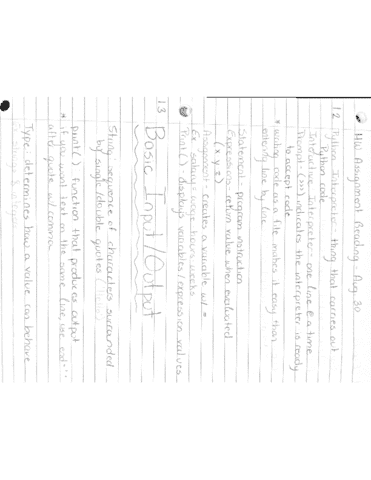 HW Assignment Reading - Aug. 30
1.2 Python Interpreter - thing that carries out
Python code
Interactive Interpreter - one line @ a time
Prompt: (>>>) indicates the interpreter is ready
to accept code
* writing code as a file makes it easy than
entering line by line
Statement - program instruction
Expressions - return value when evaluated
(x y z)
Assignment - creates a variable w/ =
Ex. salary = wage hours weeks
Print() displays variables/expression values
1.3 Basic Input/Output
String: sequence of characters surrounded
by single/double quotes
print() function that produces output
* if you want text on the same line, use end=' '
after quote w/ comma
Type: determines how a value can behave